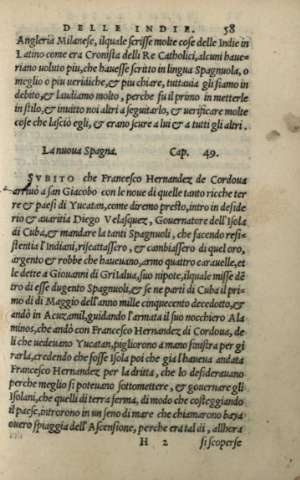 DELLE INDIE. 58
Angleria Milanese, ilquale scrisse molte cose delle Indie in
Latino come era Cronista delli Re Catholici, alcuni haue-
riano voluto piu, che hauesse scritto in lingua Spagnuola, o
meglio o piu ueridiche, & piu chiare, tuttauia gli siamo in
debito, & laudiamo molto, perche fu il primo in metterle
in stilo, & inuito noi altri a seguitarlo, & uerificare molte
cose che lasciò egli, & erano scure a lui & a tutti gli altri.
La nuoua Spagna. Cap. 49.
SVBITO che Francesco Hernandez de Cordoua
arriuò a san Giacobo con le noue di quelle tanto ricche ter
re & paesi di Yucatan, come diremo presto, intro in deside
rio & auaritia Diego Velasquez, Gouernatore dell'Isola
di Cuba, & mandare la tanti Spagnuoli, che facendo resi-
stentia l'Indiani, riscattassero, & cambiassero di quel oro,
argento & robbe che haueuano, armo quatro carauelle, et
le dette a Giouanni di Grisalua, suo nipote, ilquale misse dē
tro di esse dugento Spagnuoli, & se ne parti di Cuba il pri-
mo di di Maggio dell'anno mille cinquecento decedotto, &
andò in Acuzamil, guidando l'armata il suo nocchiero Ala
minos, che andò con Francesco Hernandez di Cordoua, de
li che uedeuano Yucatan, pigliorono a mano sinistra per gi
rarla, credendo che fosse Isola poi che gia l'haueua andata
Francesco Hernandez per la dritta, che lo desiderauano
perche meglio si poteuano sottomettere, & gouernare gli
Isolani, che quelli di terra ferma, di modo che costeggiando
il paese, introrono in un seno di mare che chiamarono baya
ouero spiaggia dell'Ascensione, perche era tal di, allhora
H 2 si scoperse